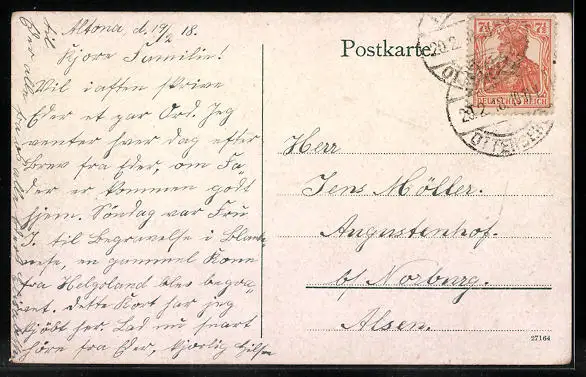 Altona d. 19/2 18.
Kjære Familie!
Vil i aften skrive
Eder et par Ord. Jeg
venter hver dag efter
Brev fra Eder, om Fa-
der er kommen godt
hjem. Söndag var Fru
J. til Begravelse i Blanke-
nese, en gammel Kone
fra Helgoland blev begra-
vet. Dette Kort har jeg
kjöbt her. Lad nu snart
höre fra Eder, kjærlig Hilsen
til Eder alle fra
Postkarte
7½ 7½
DEUTSCHES REICH
20.2.
OTTENSEN
Herr
Jens Möller.
Augustenhof.
b/ Norburg.
Alsen.
27164